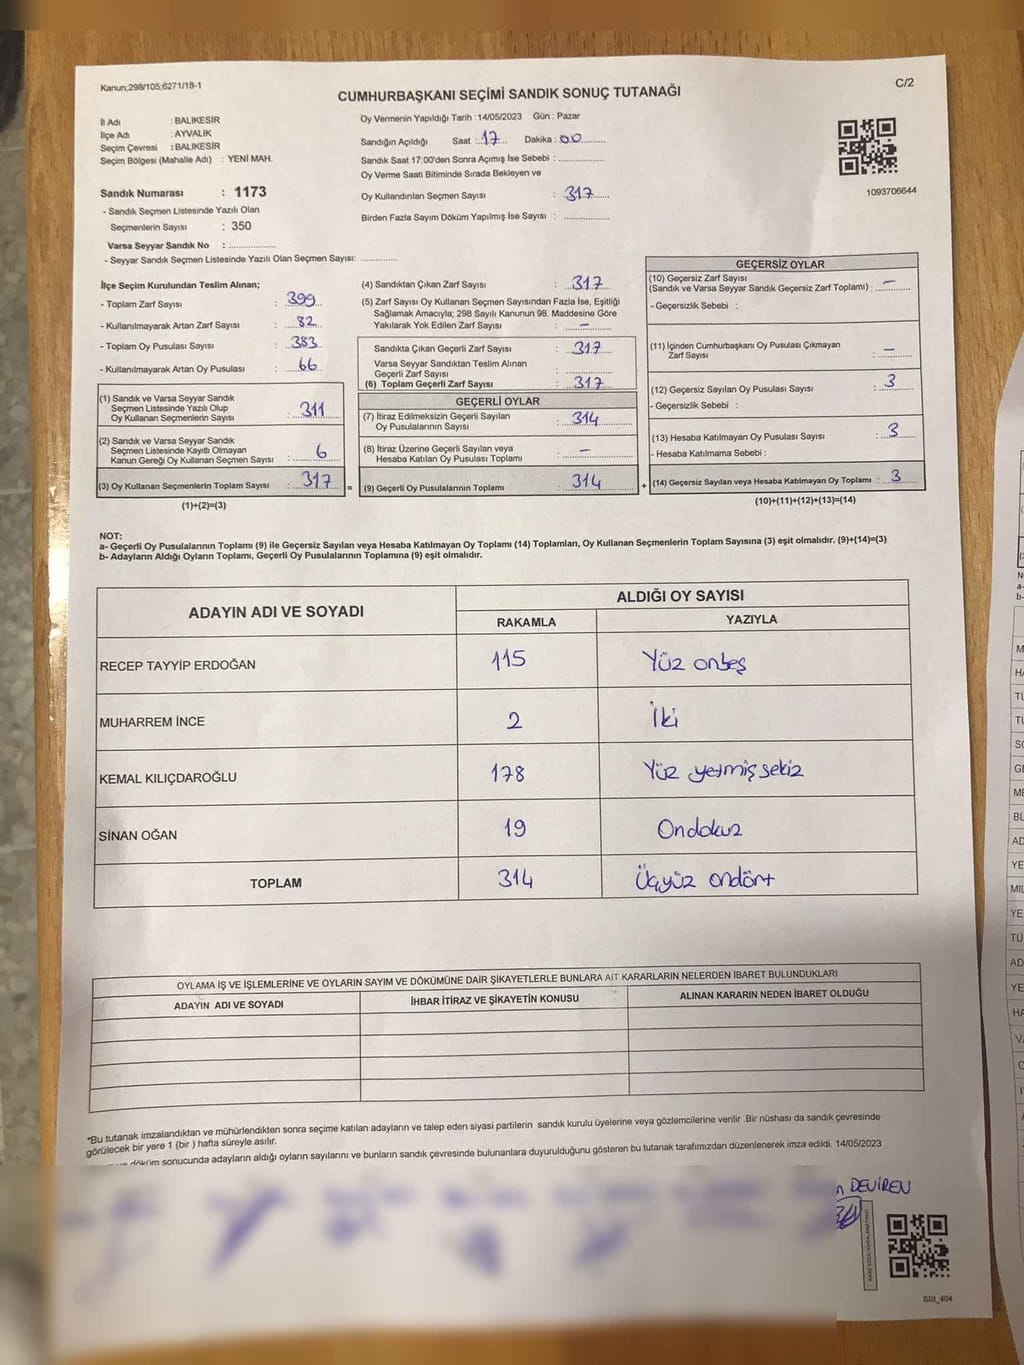 Kanun;298/105;6271/18-1
C/2
CUMHURBAŞKANI SEÇİMİ SANDIK SONUÇ TUTANAĞI
İl Adı : BALIKESİR
İlçe Adı : AYVALIK
Seçim Çevresi : BALIKESİR
Seçim Bölgesi (Mahalle Adı) : YENİ MAH.
Sandık Numarası : 1173
- Sandık Seçmen Listesinde Yazılı Olan
Seçmenlerin Sayısı : 350
Varsa Seyyar Sandık No : ..............
- Seyyar Sandık Seçmen Listesinde Yazılı Olan Seçmen Sayısı: ..............
Oy Vermenin Yapıldığı Tarih :14/05/2023 Gün : Pazar
Sandığın Açıldığı Saat : 17 Dakika : 00
Sandık Saat 17:00'den Sonra Açımış İse Sebebi : ..............
Oy Verme Saati Bitiminde Sırada Bekleyen ve
Oy Kullandırılan Seçmen Sayısı : 317
Birden Fazla Sayım Döküm Yapılmış İse Sayısı : ..............
1093706644
İlçe Seçim Kurulundan Teslim Alınan;
- Toplam Zarf Sayısı : 399
- Kullanılmayarak Artan Zarf Sayısı : 82
- Toplam Oy Pusulası Sayısı : 383
- Kullanılmayarak Artan Oy Pusulası : 66
(1) Sandık ve Varsa Seyyar Sandık
Seçmen Listesinde Yazılı Olup
Oy Kullanan Seçmenlerin Sayısı : 311
(2) Sandık ve Varsa Seyyar Sandık
Seçmen Listesinde Kayıtlı Olmayan
Kanun Gereği Oy Kullanan Seçmen Sayısı : 6
(3) Oy Kullanan Seçmenlerin Toplam Sayısı : 317 =
(1)+(2)=(3)
(4) Sandıktan Çıkan Zarf Sayısı : 317
(5) Zarf Sayısı Oy Kullanan Seçmen Sayısından Fazla İse, Eşitliği
Sağlamak Amacıyla; 298 Sayılı Kanunun 98. Maddesine Göre
Yakılarak Yok Edilen Zarf Sayısı : –
Sandıkta Çıkan Geçerli Zarf Sayısı : 317
Varsa Seyyar Sandıktan Teslim Alınan
Geçerli Zarf Sayısı : ..............
(6) Toplam Geçerli Zarf Sayısı : 317
GEÇERLİ OYLAR
(7) İtiraz Edilmeksizin Geçerli Sayılan
Oy Pusulalarının Sayısı : 314
(8) İtiraz Üzerine Geçerli Sayılan veya
Hesaba Katılan Oy Pusulası Toplamı : –
(9) Geçerli Oy Pusulalarının Toplamı : 314 +
GEÇERSİZ OYLAR
(10) Geçersiz Zarf Sayısı
(Sandık ve Varsa Seyyar Sandık Geçersiz Zarf Toplamı) : –
- Geçersizlik Sebebi :
(11) İçinden Cumhurbaşkanı Oy Pusulası Çıkmayan
Zarf Sayısı : –
(12) Geçersiz Sayılan Oy Pusulası Sayısı : 3
- Geçersizlik Sebebi :
(13) Hesaba Katılmayan Oy Pusulası Sayısı : 3
- Hesaba Katılmama Sebebi :
(14) Geçersiz Sayılan veya Hesaba Katılmayan Oy Toplamı : 3
(10)+(11)+(12)+(13)=(14)
NOT:
a- Geçerli Oy Pusulalarının Toplamı (9) ile Geçersiz Sayılan veya Hesaba Katılmayan Oy Toplamı (14) Toplamları, Oy Kullanan Seçmenlerin Toplam Sayısına (3) eşit olmalıdır. (9)+(14)=(3)
b- Adayların Aldığı Oyların Toplamı, Geçerli Oy Pusulalarının Toplamına (9) eşit olmalıdır.
ADAYIN ADI VE SOYADI
ALDIĞI OY SAYISI
RAKAMLA YAZIYLA
RECEP TAYYİP ERDOĞAN 115 Yüz onbeş
MUHARREM İNCE 2 İki
KEMAL KILIÇDAROĞLU 178 Yüz yetmiş sekiz
SİNAN OĞAN 19 Ondokuz
TOPLAM 314 Üçyüz ondört
OYLAMA İŞ VE İŞLEMLERİNE VE OYLARIN SAYIM VE DÖKÜMÜNE DAİR ŞİKAYETLERLE BUNLARA AİT KARARLARIN NELERDEN İBARET BULUNDUKLARI
ADAYIN ADI VE SOYADI İHBAR İTİRAZ VE ŞİKAYETİN KONUSU ALINAN KARARIN NEDEN İBARET OLDUĞU
*Bu tutanak imzalandıktan ve mühürlendikten sonra seçime katılan adayların ve talep eden siyasi partilerin sandık kurulu üyelerine veya gözlemcilerine verilir .Bir nüshası da sandık çevresinde
görülecek bir yere 1 (bir ) hafta süreyle asılır.
döküm sonucunda adayların aldığı oyların sayılarını ve bunların sandık çevresinde bulunanlara duyurulduğunu gösteren bu tutanak tarafımızdan düzenlenerek imza edildi. 14/05/2023
n DEVİREN